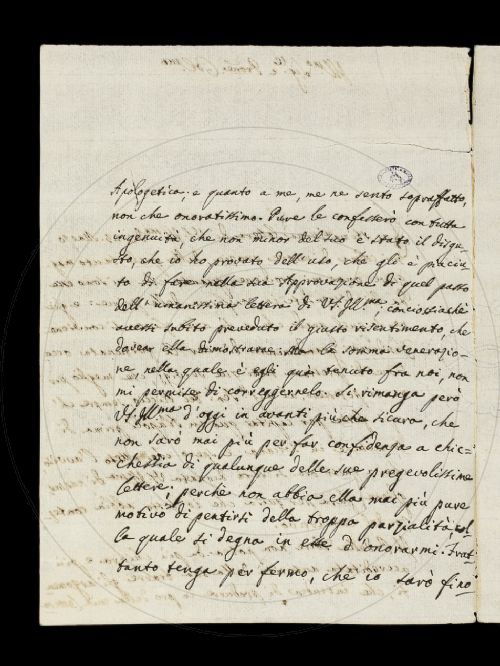 Apologetica; e quanto a me, me ne sento sopraffatto,
non che onoratissimo. Pure le confesserò con tutta
ingenuità che non minor del suo è stato il disgu-
sto, che io ho provato dell'uso, che gli è piaciu-
to di fare nella sua Approvazione di quel passo
dell'umanissima lettera di VS. Illma; conciossiachè
avessi subito preveduto il giusto risentimento, che
dovear ella dimostrarne. Ma la somma venerazio-
ne, nella quale è egli quì tenuto fra noi, non
mi permise di correggernelo. Si rimanga però
VS. Illma d'oggi in avanti più che sicura, che
non sarò mai più per far confidenza a chic-
chessia di qualunque delle sue pregevolissime
lettere, perchè non abbia ella mai più pure
motivo di pentirsi della troppa parzialità, col-
la quale si degna in esse d'onorarmi. Frat-
tanto tenga per fermo, che io sarò fino